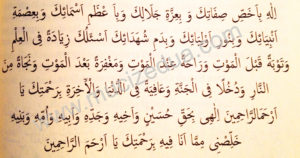 اِلٰهِ بِاَخَصِّ صِفَاتِكَ وَ بِعِزَّةِ جَلَالِكَ وَ بِاَ عْظَمِ اَسْمَائِكَ وَ بِعِصْمَةِ
اَنْبِيَائِكَ وَ بِنُورِ اَوْلِيَائِكَ وَ بِدَمِ شُهَدَائِكَ اَسْئَلُكَ زِيَادَةً فِى الْعِلْمِ
وَتَوْبَةً قَبْلَ الْمَوْتِ وَرَاحَةً عِنْدَ الْمَوْتِ وَمَغْفِرَةً بَعْدَ الْمَوْتِ وَ نَجَاةً مِنَ
النَّارِ وَدُخُلًا فِى الْجَنَّةِ وَعَافِيَةً فِى الدُّنْيَا وَالْاٰخِرَةِ بِرَحْمَتِكَ يَا
اَرْحَمَالرَّاحِمِينَ اِلٰهِى بِحَقِّ حُسَيْنٍ وَاَخِيهِ وَجَدِّهِ وَاَبِيهِ وَاُمِّهِ وَبَنِيهِ
خَلِّصْنِى مِمَّا اَنَا فِيهِ بِرَحْمَتِكَ يَا اَرْحَمَ الرَّاحِمِينَ